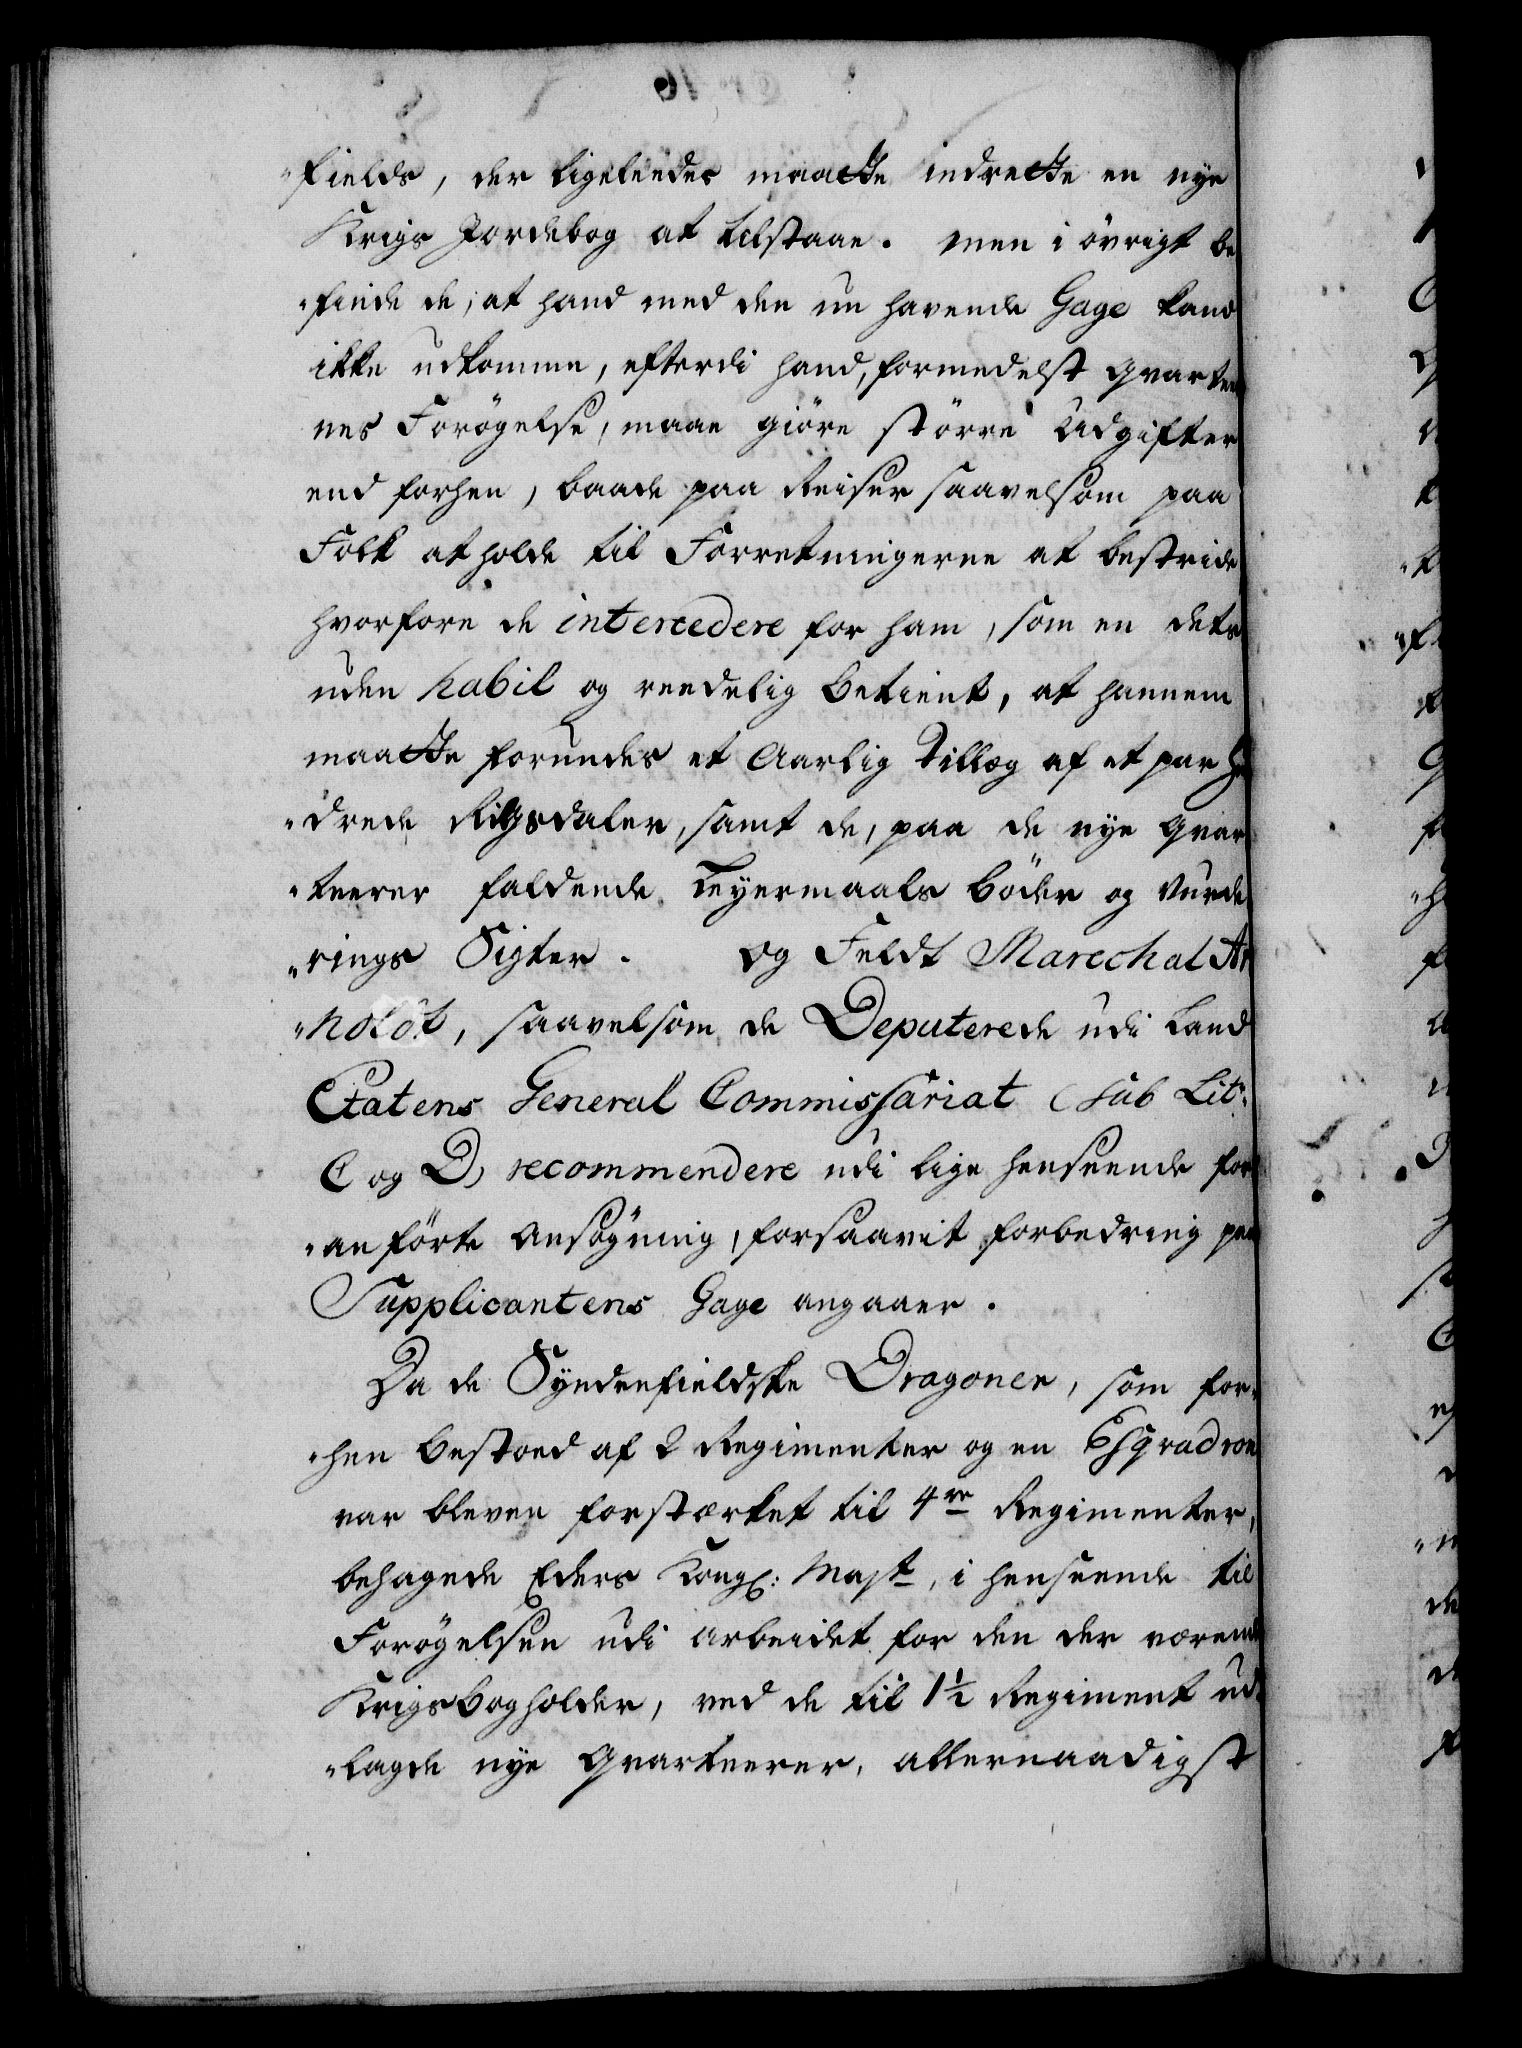 "fields, der ligeleedes maatte indrette en nye
Krigs Jordebog at tilstaae. men i övrigt be
"finde de, at hand med den nu havende Gage kand
ikke udkomme, efterdi hand, formedelst Qvartee
nes Forögelse, maae giöre större Udgifter
end forhen, baade paa Reiser saavelsom paa
Folk at holde til Forretningerne at bestride
hvorfore de intercedere for ham, som en dets
uden habil og reedelig Betient, at hannem
maatte forundes et Aarlig Tillæg af et par Hu
"drede Rigsdaler, samt de, paa de nye Qvar
"teerer faldende Leyermaals Böder og Vurde
"rings Sigter. Og Feldt Marechal Ar
"noldt, saavelsom de Deputerede udi Land
Etatens General Commissariat (sub Litr:
C og D) recommendere udi lige henseende for
"anförte Ansögning, forsaavit forbedring paa
Supplicantens Gage angaaer.
Da de Syndenfieldske Dragoner, som for-
"hen bestoed af 2 Regimenter og en Esqvadron
var bleven forstærket til 4re Regimenter,
behagede Eders Kongl: Mayt, i henseende til
Forögelsen udi arbeidet for den der værende
Krigsbogholder, ved de til 1½ Regiment ud-
"lagde nye Qvarteerer, allernaadigst